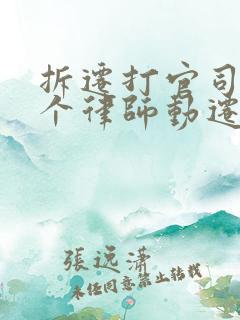 拆迁打官司
个律師動迁
張远潇
未经同意禁止转载